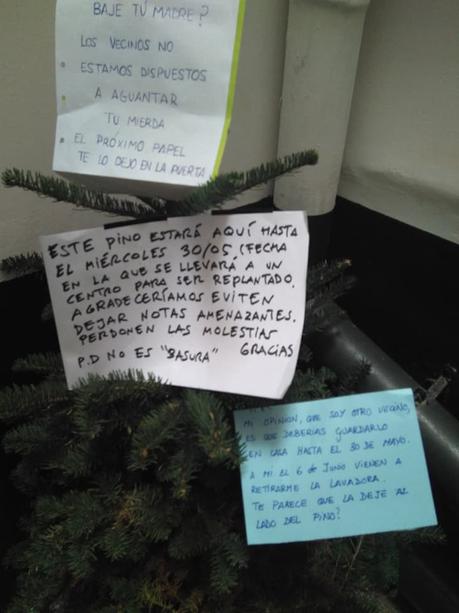 BAJE TÚ MADRE?
LOS VECINOS NO
ESTAMOS DISPUESTOS
A AGUANTAR
TU MIERDA
EL PRÓXIMO PAPEL
TE LO DEJO EN LA PUERTA
ESTE PINO ESTARÁ AQUÍ HASTA
EL MIÉRCOLES 30/05 (FECHA
EN LA QUE SE LLEVARÁ A UN
CENTRO PARA SER REPLANTADO.
AGRADECERÍAMOS EVITEN
DEJAR NOTAS AMENAZANTES.
PERDONEN LAS MOLESTIAS
GRACIAS
P.D NO ES "BASURA"
MI OPINION, QUE SOY OTRO VECINO,
ES QUE DEBERÍAS GUARDARLO
EN CASA HASTA EL 30 DE MAYO.
A MÍ EL 6 de JUNIO VIENEN A
RETIRARME LA LAVADORA.
TE PARECE QUE LA DEJE AL
LADO DEL PINO?